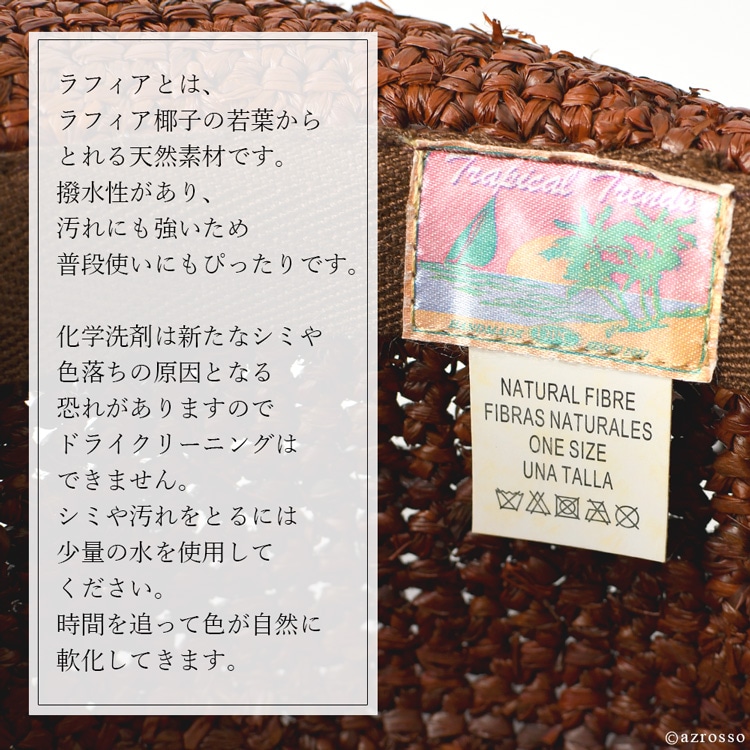 ラフィアとは、
ラフィア椰子の若葉から
とれる天然素材です。
撥水性があり、
汚れにも強いため
普段使いにもぴったりです。
化学洗剤は新たなシミや
色落ちの原因となる
恐れがありますので
ドライクリーニングは
できません。
シミや汚れをとるには
少量の水を使用して
ください。
時間を追って色が自然に
軟化してきます。
Trapical Trends
NATURAL FIBRE
FIBRAS NATURALES
ONE SIZE
UNA TALLA
©azrosso